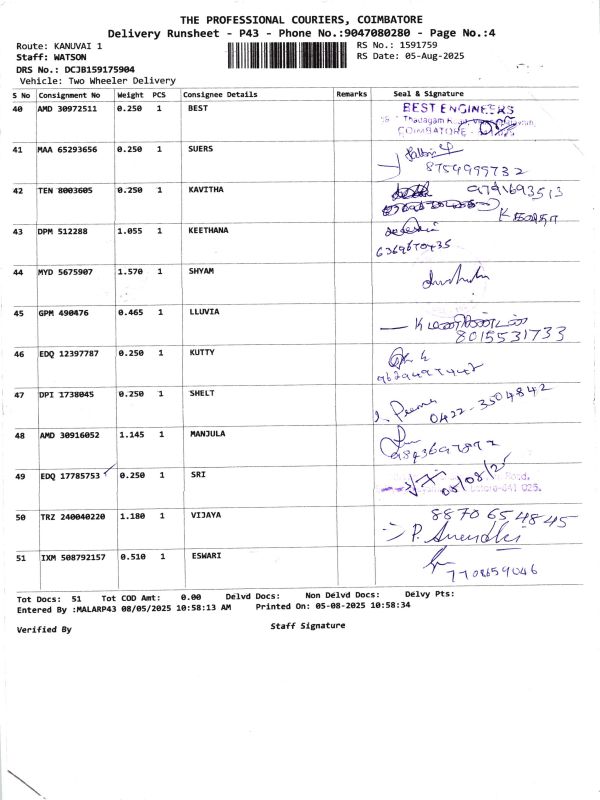 THE PROFESSIONAL COURIERS, COIMBATORE
Delivery Runsheet - P43 - Phone No.:9047080280 - Page No.:4
Route: KANUVAI 1
RS No.: 1591759
Staff: WATSON
RS Date: 05-Aug-2025
DRS No.: DCJB159175904
Vehicle: Two Wheeler Delivery
S No Consignment No Weight PCS Consignee Details Remarks Seal & Signature
40 AMD 30972511 0.250 1 BEST BEST ENGINEERS
COIMBATORE
41 MAA 65293656 0.250 1 SUERS
8754999732
42 TEN 8003605 0.250 1 KAVITHA
43 DPM 512288 1.055 1 KEETHANA
44 MYD 5675907 1.570 1 SHYAM
45 GPM 490476 0.465 1 LLUVIA
8015531733
46 EDQ 12397787 0.250 1 KUTTY
47 DPI 1738045 0.250 1 SHELT
0422-3504842
48 AMD 30916052 1.145 1 MANJULA
49 EDQ 17785753 0.250 1 SRI Road,
05/08/25
50 TRZ 240040220 1.180 1 VIJAYA 8870654845
51 IXM 508792157 0.510 1 ESWARI
7708659046
Tot Docs: 51 Tot COD Amt: 0.00 Delvd Docs: Non Delvd Docs: Delvy Pts:
Entered By :MALARP43 08/05/2025 10:58:13 AM Printed On: 05-08-2025 10:58:34
Verified By
Staff Signature